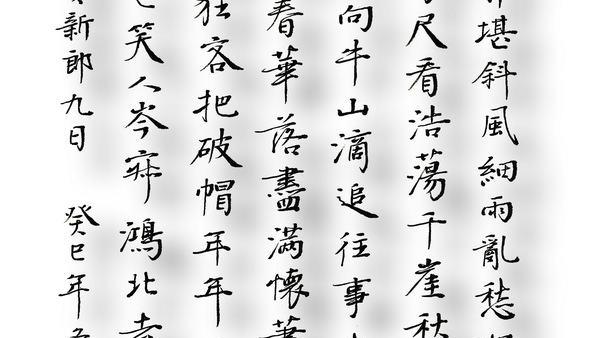 堪斜風細雨亂愁
尺看浩蕩千崖秋
向牛山滴追往事
春華落盡滿懷
狂客把破帽年年
笑人岑寂鴻北去
新郎九日 癸巳年